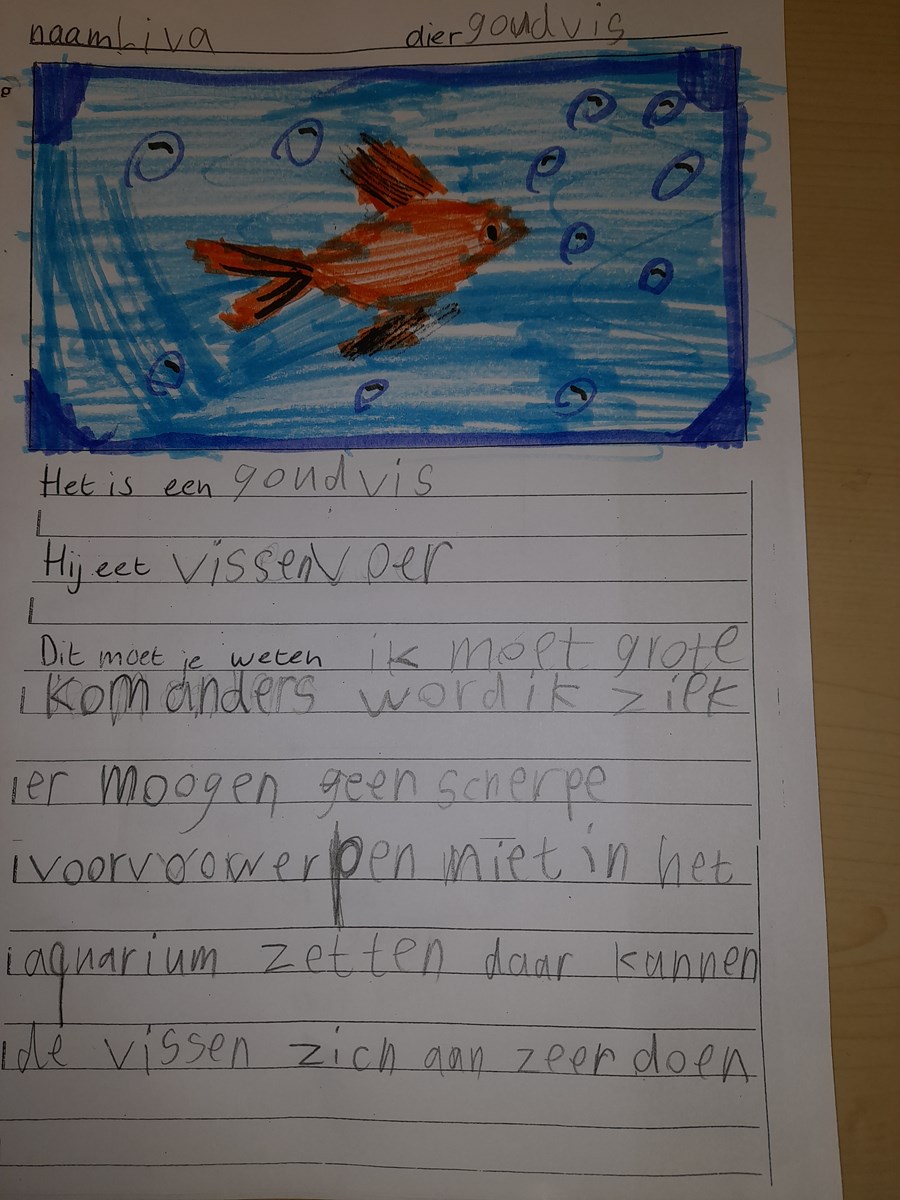 naam Liva dier goudvis
g
Het is een goudvis
Hij eet vissenvoer
Dit moet je weten ik moet grote
kom anders word ik ziek
er moogen geen scherpe
voorvoorwerpen miet in het
aquarium zetten daar kunnen
de vissen zich aan zeer doen